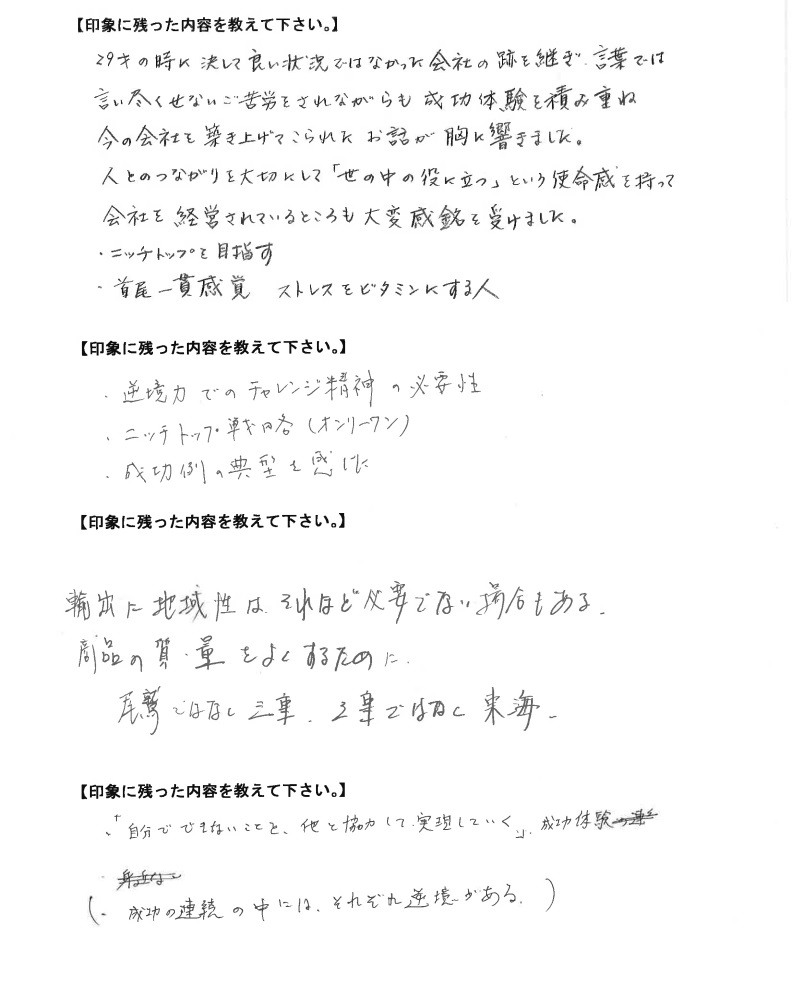 【印象に残った内容を教えて下さい。】
29才の時に決して良い状況ではなかった会社の跡を継ぎ、言葉では
言い尽くせないご苦労をされながらも成功体験を積み重ね
今の会社を築き上げてこられたお話が胸に響きました。
人とのつながりを大切にして「世の中の役に立つ」という使命感を持って
会社を経営されているところも大変感銘を受けました。
・ニッチトップを目指す
・首尾一貫感覚 ストレスをビタミンにする人
【印象に残った内容を教えて下さい。】
・逆境力でのチャレンジ精神の必要性
・ニッチトップ戦略(オンリーワン)
・成功例の典型を感じた
【印象に残った内容を教えて下さい。】
輸出に地域性はそれほど必要でない場合もある。
商品の質・量をよくするために、
尾鷲ではなく三重、三重ではなく東海。
【印象に残った内容を教えて下さい。】
・「自分でできないことを、他と協力して実現していく」、成功体験
(・成功の連続の中には、それぞれ逆境がある。)